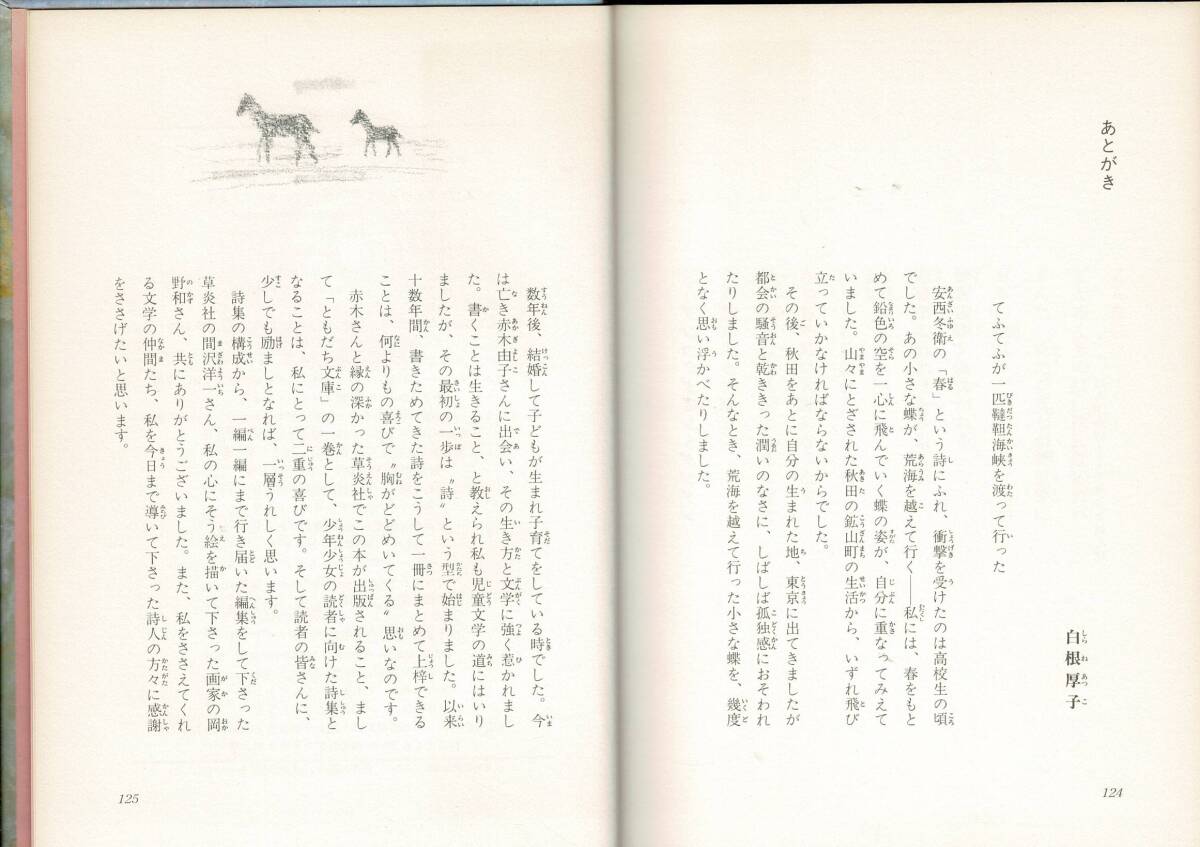 あとがき
白根厚子
てふてふが一匹韃靼海峡を渡って行った
安西冬衛の「春」という詩にふれ、衝撃を受けたのは高校生の頃
でした。あの小さな蝶が、荒海を越えて行く――私には、春をもと
めて鉛色の空を一心に飛んでいく蝶の姿が、自分に重なってみえて
いました。山々にとざされた秋田の鉱山町の生活から、いずれ飛び
立っていかなければならないからでした。
その後、秋田をあとに自分の生まれた地、東京に出てきましたが
都会の騒音と乾ききった潤いのなさに、しばしば孤独感におそわれ
たりしました。そんなとき、荒海を越えて行った小さな蝶を、幾度
となく思い浮かべたりしました。
124
数年後、結婚して子どもが生まれ子育てをしている時でした。今
は亡き赤木由子さんに出会い、その生き方と文学に強く惹かれまし
た。書くことは生きること、と教えられ私も児童文学の道にはいり
ましたが、その最初の一歩は〝詩〟という型で始まりました。以来
十数年間、書きためてきた詩をこうして一冊にまとめて上梓できる
ことは、何よりもの喜びで〝胸がどどめいてくる〟思いなのです。
赤木さんと縁の深かった草炎社でこの本が出版されること、まし
て「ともだち文庫」の一巻として、少年少女の読者に向けた詩集と
なることは、私にとって二重の喜びです。そして読者の皆さんに、
少しでも励ましとなれば、一層うれしく思います。
詩集の構成から、一編一編にまで行き届いた編集をして下さった
草炎社の間沢洋一さん、私の心にそう絵を描いて下さった画家の岡
野和さん、共にありがとうございました。また、私をささえてくれ
る文学の仲間たち、私を今日まで導いて下さった詩人の方々に感謝
をささげたいと思います。
125